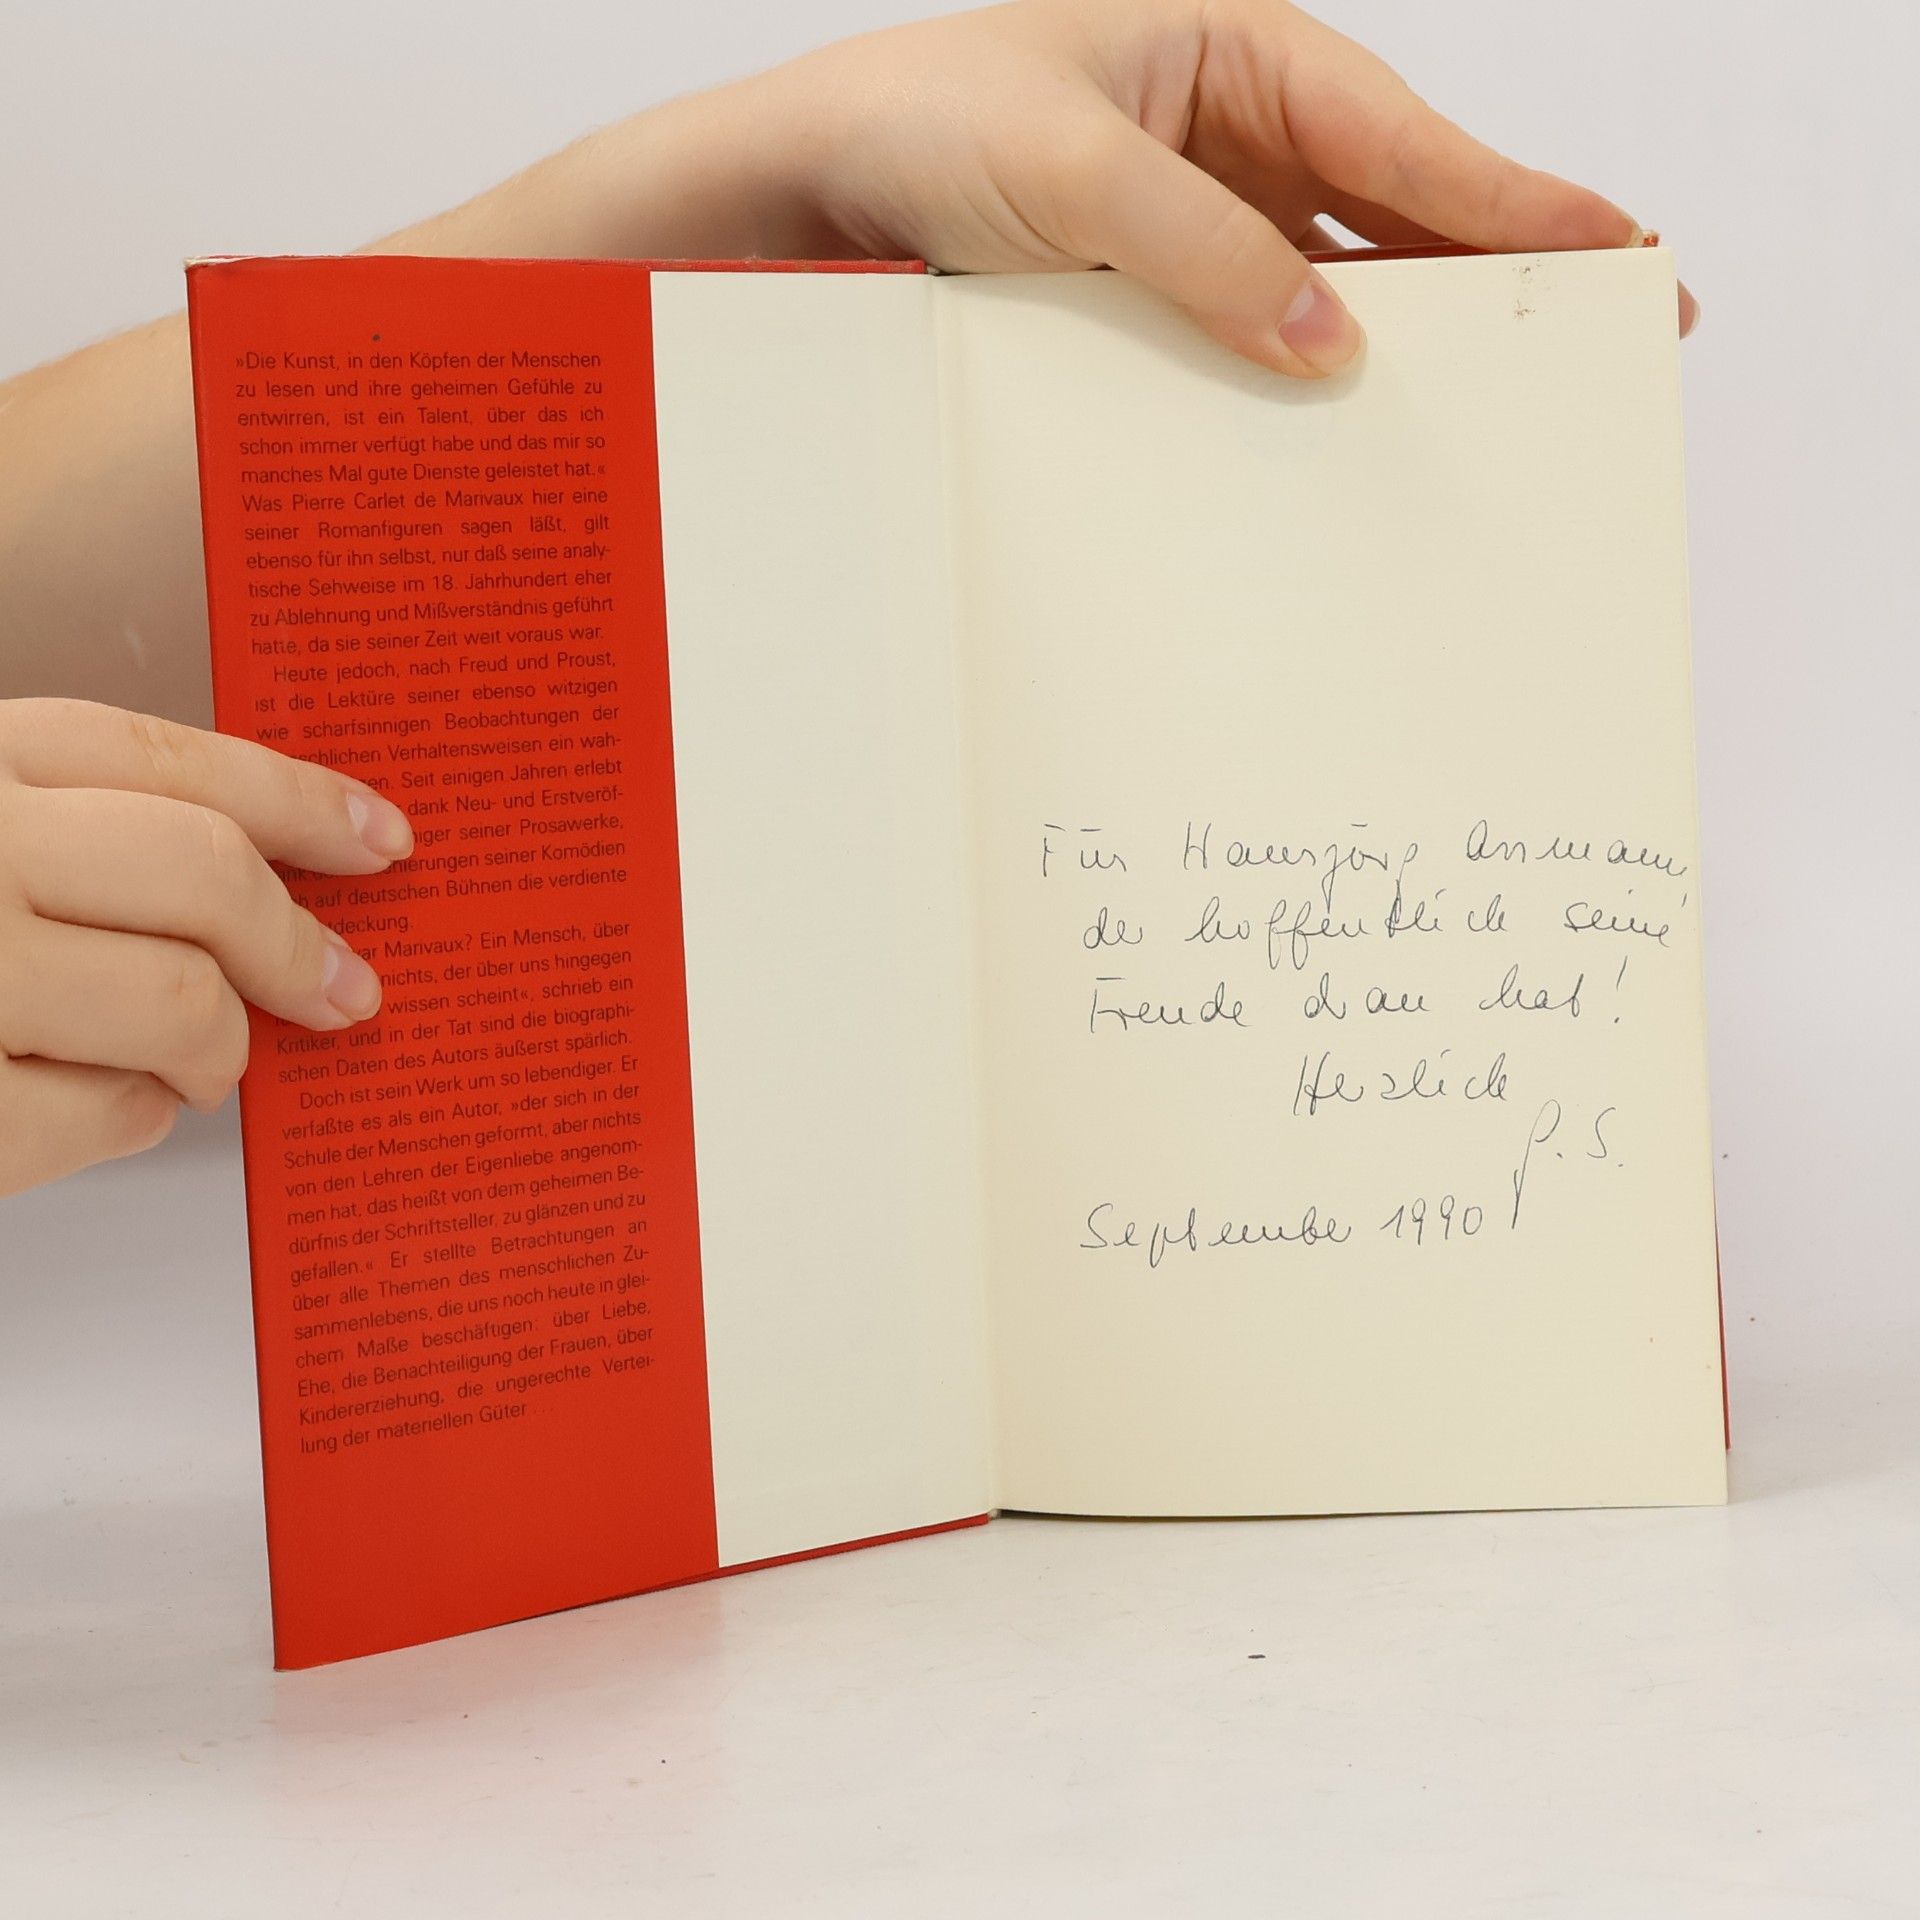 »Die Kunst, in den Köpfen der Menschen
zu lesen und ihre geheimen Gefühle zu
entwirren, ist ein Talent, über das ich
schon immer verfügt habe und das mir so
manches Mal gute Dienste geleistet hat.«
Was Pierre Carlet de Marivaux hier eine
seiner Romanfiguren sagen läßt, gilt
ebenso für ihn selbst, nur daß seine analy-
tische Sehweise im 18. Jahrhundert eher
zu Ablehnung und Mißverständnis geführt
hatte, da sie seiner Zeit weit voraus war.
Heute jedoch, nach Freud und Proust,
ist die Lektüre seiner ebenso witzigen
wie scharfsinnigen Beobachtungen der
schlichen Verhaltensweisen ein wah-
en. Seit einigen Jahren erlebt
dank Neu- und Erstveröf-
niger seiner Prosawerke,
nierungen seiner Komödien
h auf deutschen Bühnen die verdiente
tdeckung.
ar Marivaux? Ein Mensch, über
nichts, der über uns hingegen
wissen scheint«, schrieb ein
Kritiker, und in der Tat sind die biographi-
schen Daten des Autors äußerst spärlich.
Doch ist sein Werk um so lebendiger. Er
verfaßte es als ein Autor, »der sich in der
Schule der Menschen geformt, aber nichts
von den Lehren der Eigenliebe angenom-
men hat, das heißt von dem geheimen Be-
dürfnis der Schriftsteller, zu glänzen und zu
gefallen.« Er stellte Betrachtungen an
über alle Themen des menschlichen Zu-
sammenlebens, die uns noch heute in glei-
chem Maße beschäftigen: über Liebe,
Ehe, die Benachteiligung der Frauen, über
Kindererziehung, die ungerechte Vertei-
lung der materiellen Güter ...
Für Hansjörg
der hoffentlich seine
Freude dran hat!
Herzlich
P. S.
September 1990